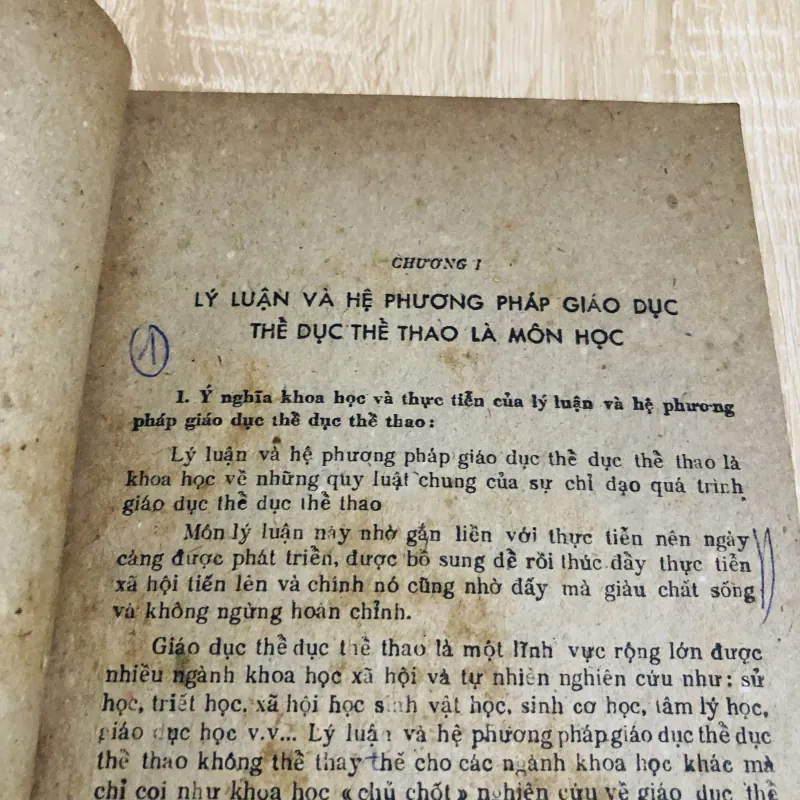 CHƯƠNG I
LÝ LUẬN VÀ HỆ PHƯƠNG PHÁP GIÁO DỤC
THỂ DỤC THỂ THAO LÀ MÔN HỌC
1
1. Ý nghĩa khoa học và thực tiễn của lý luận và hệ phương
pháp giáo dục thể dục thể thao:
Lý luận và hệ phượng pháp giáo dục thể dục thể thao là
khoa học về những quy luật chung của sự chỉ đạo quá trình
giáo dục thể dục thể thao
Môn lý luận này nhờ gắn liền với thực tiễn nên ngày
càng được phát triển, được bổ sung để rồi thúc đẩy thực tiễn
xã hội tiến lên và chính nó cũng nhờ đấy mà giàu chất sống
và không ngừng hoàn chỉnh.
Giáo dục thể dục thể thao là một lĩnh vực rộng lớn được
nhiều ngành khoa học xã hội và tự nhiên nghiên cứu như: sử
học, triết học, xã hội học sinh vật học, sinh cơ học, tâm lý học,
giáo dục học v.v... Lý luận và hệ phương pháp giáo dục thể dục
thể thao không thể thay thế cho các ngành khoa học khác mà
chỉ coi như khoa học « chủ chốt » nghiên cứu về giáo dục thể